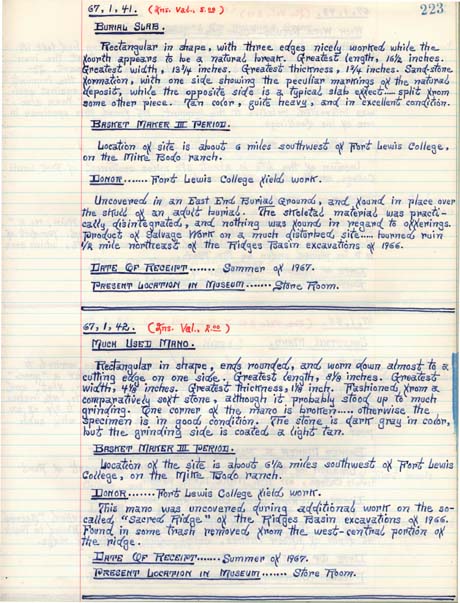 223
67,1,41. (Ins. Val., 5.00)
BURIAL SLAB.
Rectangular in shape, with three edges nicely worked while the
fourth appears to be a natural break. Greatest length, 16½ inches.
Greatest width, 13¼ inches. Greatest thickness, 1¾ inches. Sandstone
formation, with one side showing the peculiar markings of the natural
deposit, while the opposite side is a typical slab effect.... split from
some other piece. Tan color, quite heavy, and in excellent condition.
BASKET MAKER III PERIOD.
Location of site is about 6 miles southwest of Fort Lewis College,
on the Mike Bodo ranch.
DONOR....... Fort Lewis College field work.
Uncovered in an East End Burial Ground, and found in place over
the skull of an adult burial. The skeletal material was practi-
cally disintegrated, and nothing was found in regard to offerings.
Product of Salvage Work on a much disturbed site..... burned ruin
½ mile northeast of the Ridges Basin excavations of 1966.
DATE OF RECEIPT....... Summer of 1967.
PRESENT LOCATION IN MUSEUM....... Store Room.
67,1,42. (Ins. Val., 2.00)
MUCH USED MANO.
Rectangular in shape, ends rounded, and worn down almost to a
cutting edge on one side. Greatest length, inches. Greatest
width, 4⅛ inches. Greatest thickness, 1⅛ inch. Fashioned from a
comparatively soft stone, although it probably stood up to much
grinding. One corner of the mano is broken..... otherwise the
specimen is in good condition. The stone is dark gray in color,
but the grinding side is coated a light tan.
BASKET MAKER III PERIOD.
Location of the site is about 6½ miles southwest of Fort Lewis
College, on the Mike Bodo ranch.
DONOR....... Fort Lewis College field work.
This mano was uncovered during additional work on the so-
called "Sacred Ridge" of the Ridges Basin excavations of 1966.
Found in some trash removed from the west-central portion of
the ridge.
DATE OF RECEIPT....... Summer of 1967.
PRESENT LOCATION IN MUSEUM....... Store Room.